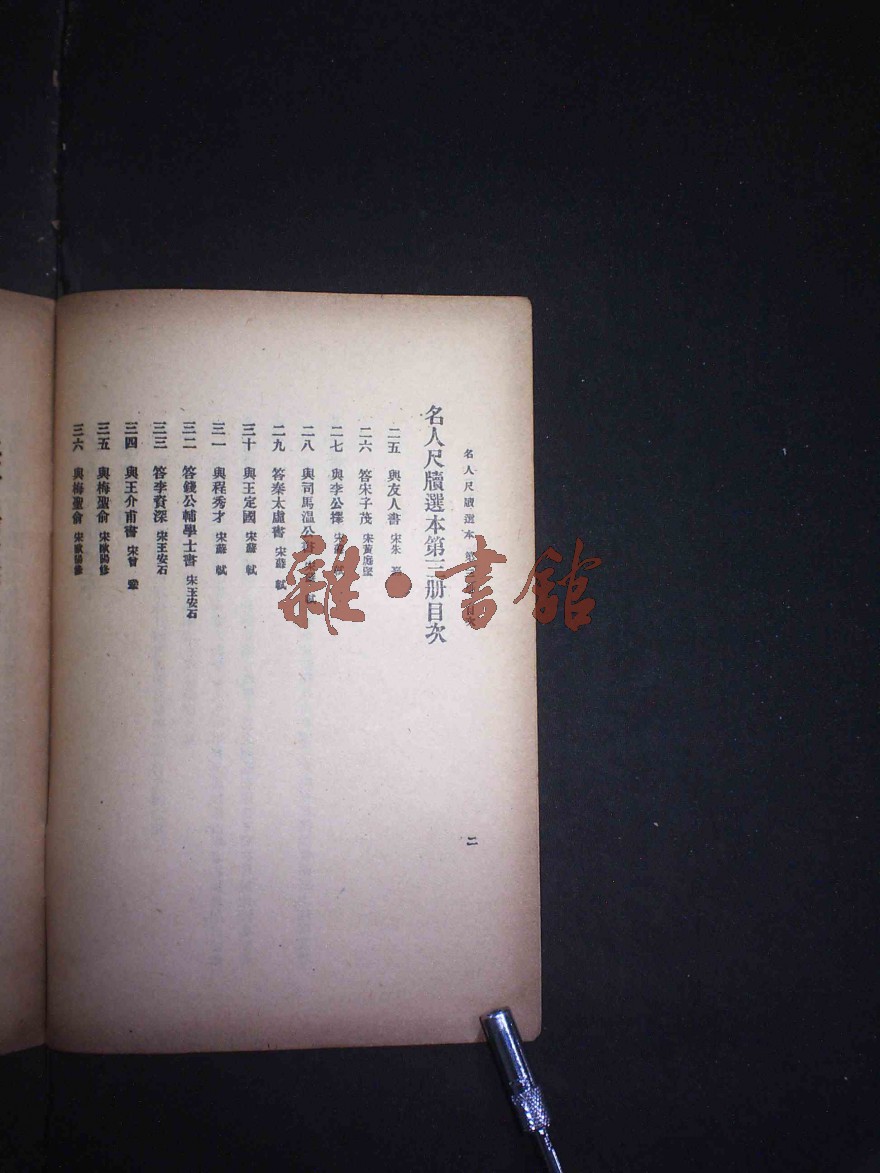 名人尺牘選本 第三册目次
二
名人尺牘選本第三册目次
二五 與友人書 宋朱 熹
二六 答宋子茂 宋黃庭堅
二七 與李公擇 宋蘇 軾
二八 與司馬温公書 宋蘇 軾
二九 答秦太虛書 宋蘇 軾
三十 與王定國 宋蘇 軾
三一 與程秀才 宋蘇 軾
三二 答錢公輔學士書 宋王安石
三三 答李資深 宋王安石
三四 與王介甫書 宋曾 鞏
三五 與梅聖俞 宋歐陽修
三六 與梅聖俞 宋歐陽修
雜·書館